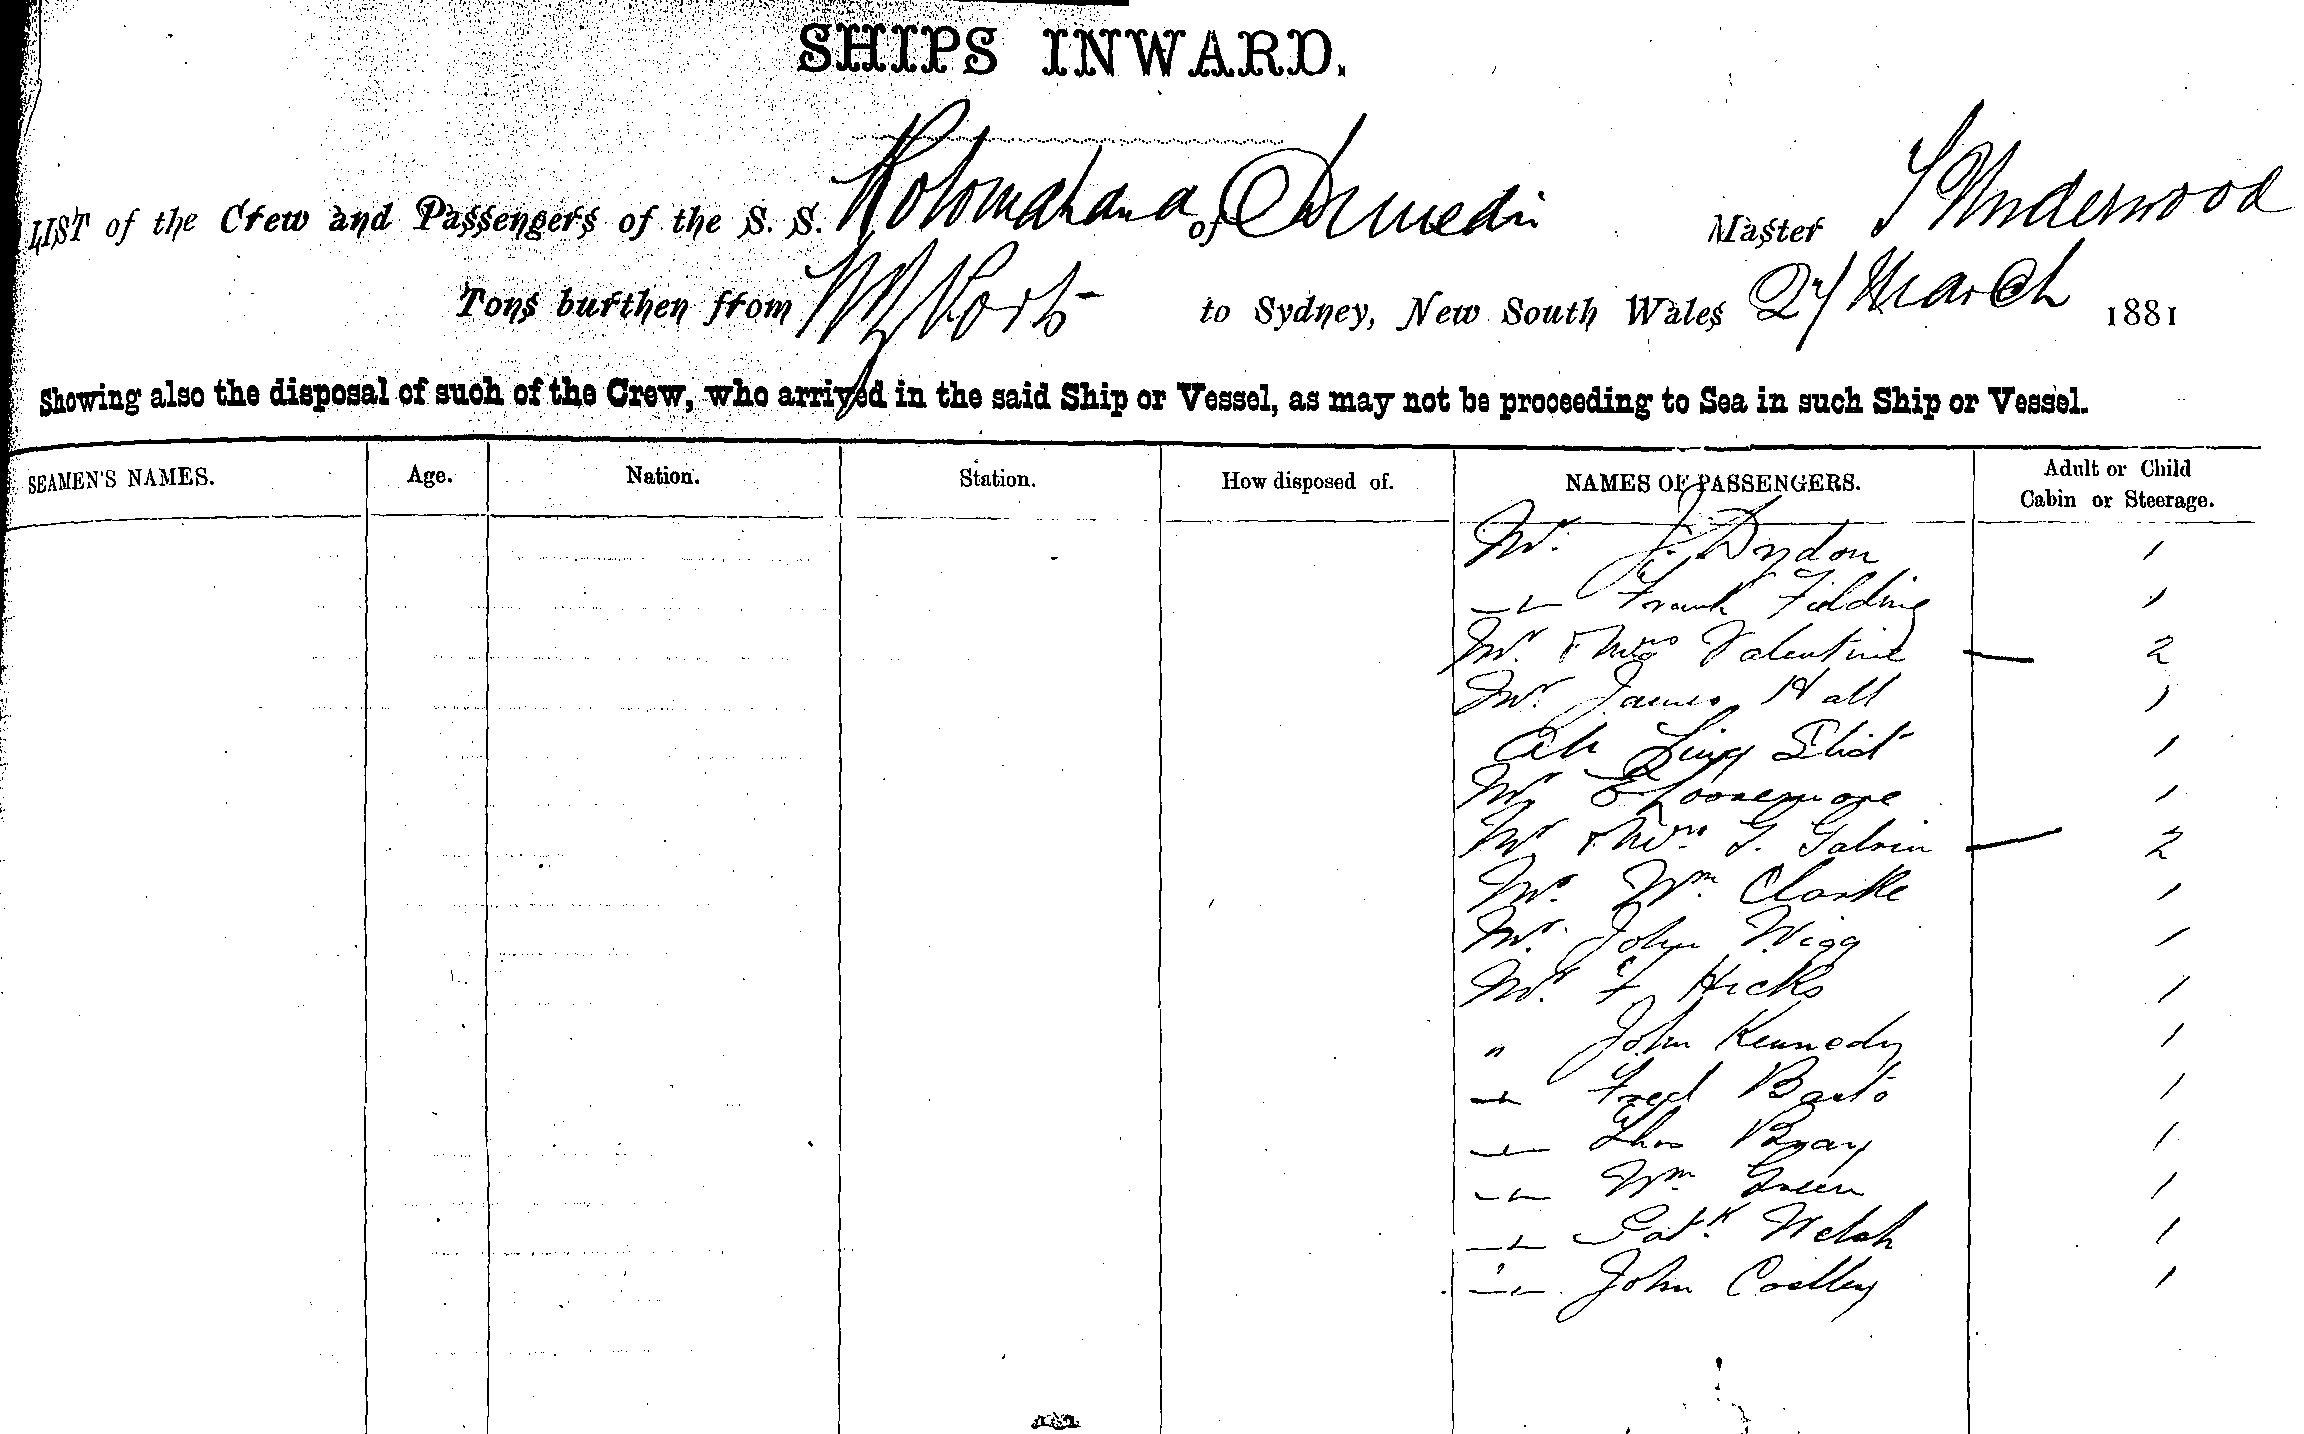 SHIPS INWARD.
LIST of the Crew and Passengers of the S. S. Rotomahana of Dunedin Master T Underwood
Tons burthen from NZ Ports to Sydney, New South Wales 27 March 1881
Showing also the disposal of such of the Crew, who arrived in the said Ship or Vessel, as may not be proceeding to Sea in such Ship or Vessel.
SEAMEN'S NAMES. Age. Nation. Station. How disposed of. NAMES OF PASSENGERS. Adult or Child
Cabin or Steerage.
Mr. J. Drydon 1
Frank Filding 1
Mr. & Mrs Valentine — 2
Mr. James Hall 1
Ah Ling 1
Mr E Loosemore 1
Mr & Mrs. G. Galvin — 2
Mr. Wm. Clarke 1
Mr. John Wigg 1
Mr. F Hicks 1
" John Kennedy 1
Fred 1
Thos Bray 1
Wm. Green 1
Patk. Welsh 1
John 1